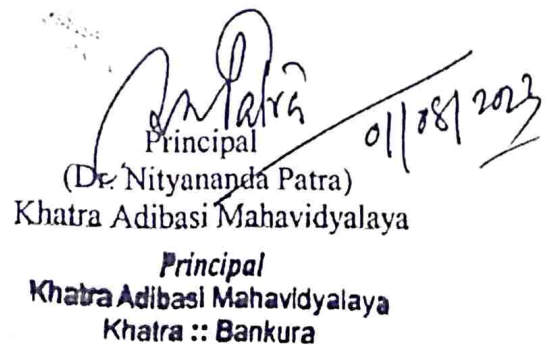 01/08/2023
Principal
(Dr. Nityananda Patra)
Khatra Adibasi Mahavidyalaya
Principal
Khatra Adibasi Mahavidyalaya
Khatra :: Bankura